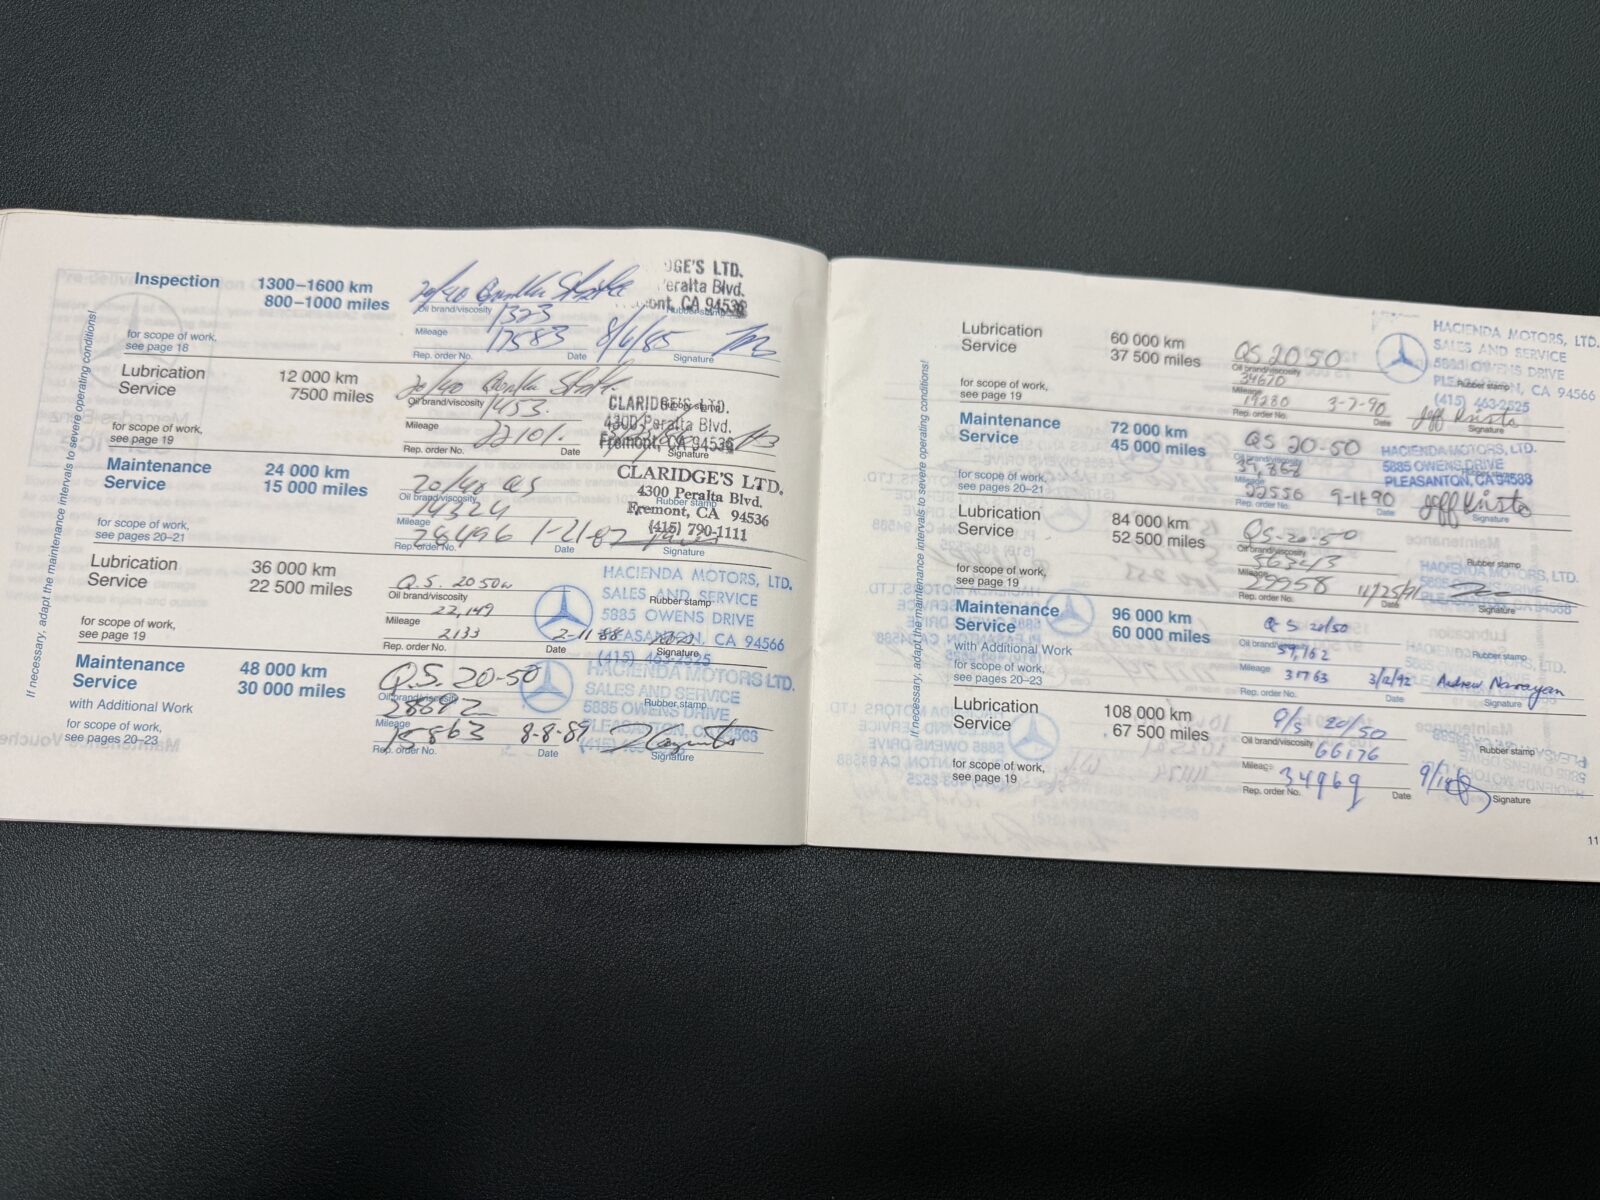 If necessary, adapt the maintenance intervals to severe operating conditions!
Inspection 1300–1600 km
800–1000 miles
for scope of work,
see page 18
20/40
Oil brand/viscosity
1323
Mileage
17583
Rep. order No.
8/6/85
Date
Signature
Rubber stamp
DGE'S LTD.
Peralta Blvd.
mont, CA 94536
Lubrication 12 000 km
Service 7500 miles
for scope of work,
see page 19
20/40
Oil brand/viscosity
1453.
Mileage
22101.
Rep. order No.
Date
Signature
Rubber stamp
CLARIDGE'S LTD.
4300 Peralta Blvd.
Fremont, CA 94536
Maintenance 24 000 km
Service 15 000 miles
for scope of work,
see pages 20–21
20/40 QS
Oil brand/viscosity
14324
Mileage
28496 1-21-87
Rep. order No.
Date
Signature
Rubber stamp
CLARIDGE'S LTD.
4300 Peralta Blvd.
Fremont, CA 94536
(415) 790-1111
Lubrication 36 000 km
Service 22 500 miles
for scope of work,
see page 19
Q.S. 20 50w
Oil brand/viscosity
22,149
Mileage
2133 2-11-88
Rep. order No.
Date
Signature
Rubber stamp
HACIENDA MOTORS, LTD.
SALES AND SERVICE
5885 OWENS DRIVE
PLEASANTON, CA 94566
(415) 463-2525
Maintenance 48 000 km
Service 30 000 miles
with Additional Work
for scope of work,
see pages 20–23
Q.S. 20-50
Oil brand/viscosity
Mileage
8-8-89
Rep. order No.
Date
Signature
Rubber stamp
HACIENDA MOTORS LTD.
SALES AND SERVICE
5885 OWENS DRIVE
PLEASANTON, CA 94566
If necessary, adapt the maintenance intervals to severe operating conditions!
Lubrication 60 000 km
Service 37 500 miles
for scope of work,
see page 19
QS 20 50
Oil brand/viscosity
34610
Mileage
19280 3-7-90
Rep. order No.
Date
Signature
Rubber stamp
HACIENDA MOTORS, LTD.
SALES AND SERVICE
5885 OWENS DRIVE
PLEASANTON, CA 94566
(415) 463-2525
Maintenance 72 000 km
Service 45 000 miles
for scope of work,
see pages 20–21
QS 20-50
Oil brand/viscosity
39,868
Mileage
22556 9-11-90
Rep. order No.
Date
Signature
Rubber stamp
HACIENDA MOTORS, LTD.
5885 OWENS DRIVE
PLEASANTON, CA 94588
Lubrication 84 000 km
Service 52 500 miles
for scope of work,
see page 19
QS-20-50
Oil brand/viscosity
56343
Mileage
29958 11/25/91
Rep. order No.
Date
Signature
Rubber stamp
HACIENDA MOTORS, LTD.
5885 OWENS DRIVE
PLEASANTON, CA 94588
Maintenance 96 000 km
Service 60 000 miles
with Additional Work
for scope of work,
see pages 20–23
QS 20/50
Oil brand/viscosity
59,762
Mileage
31763 3/12/92 Andrew Narayan
Rep. order No.
Date
Signature
Rubber stamp
Lubrication 108 000 km
Service 67 500 miles
for scope of work,
see page 19
Q/S 20/50
Oil brand/viscosity
66176
Mileage
34969
Rep. order No.
Date
Signature
Rubber stamp
11